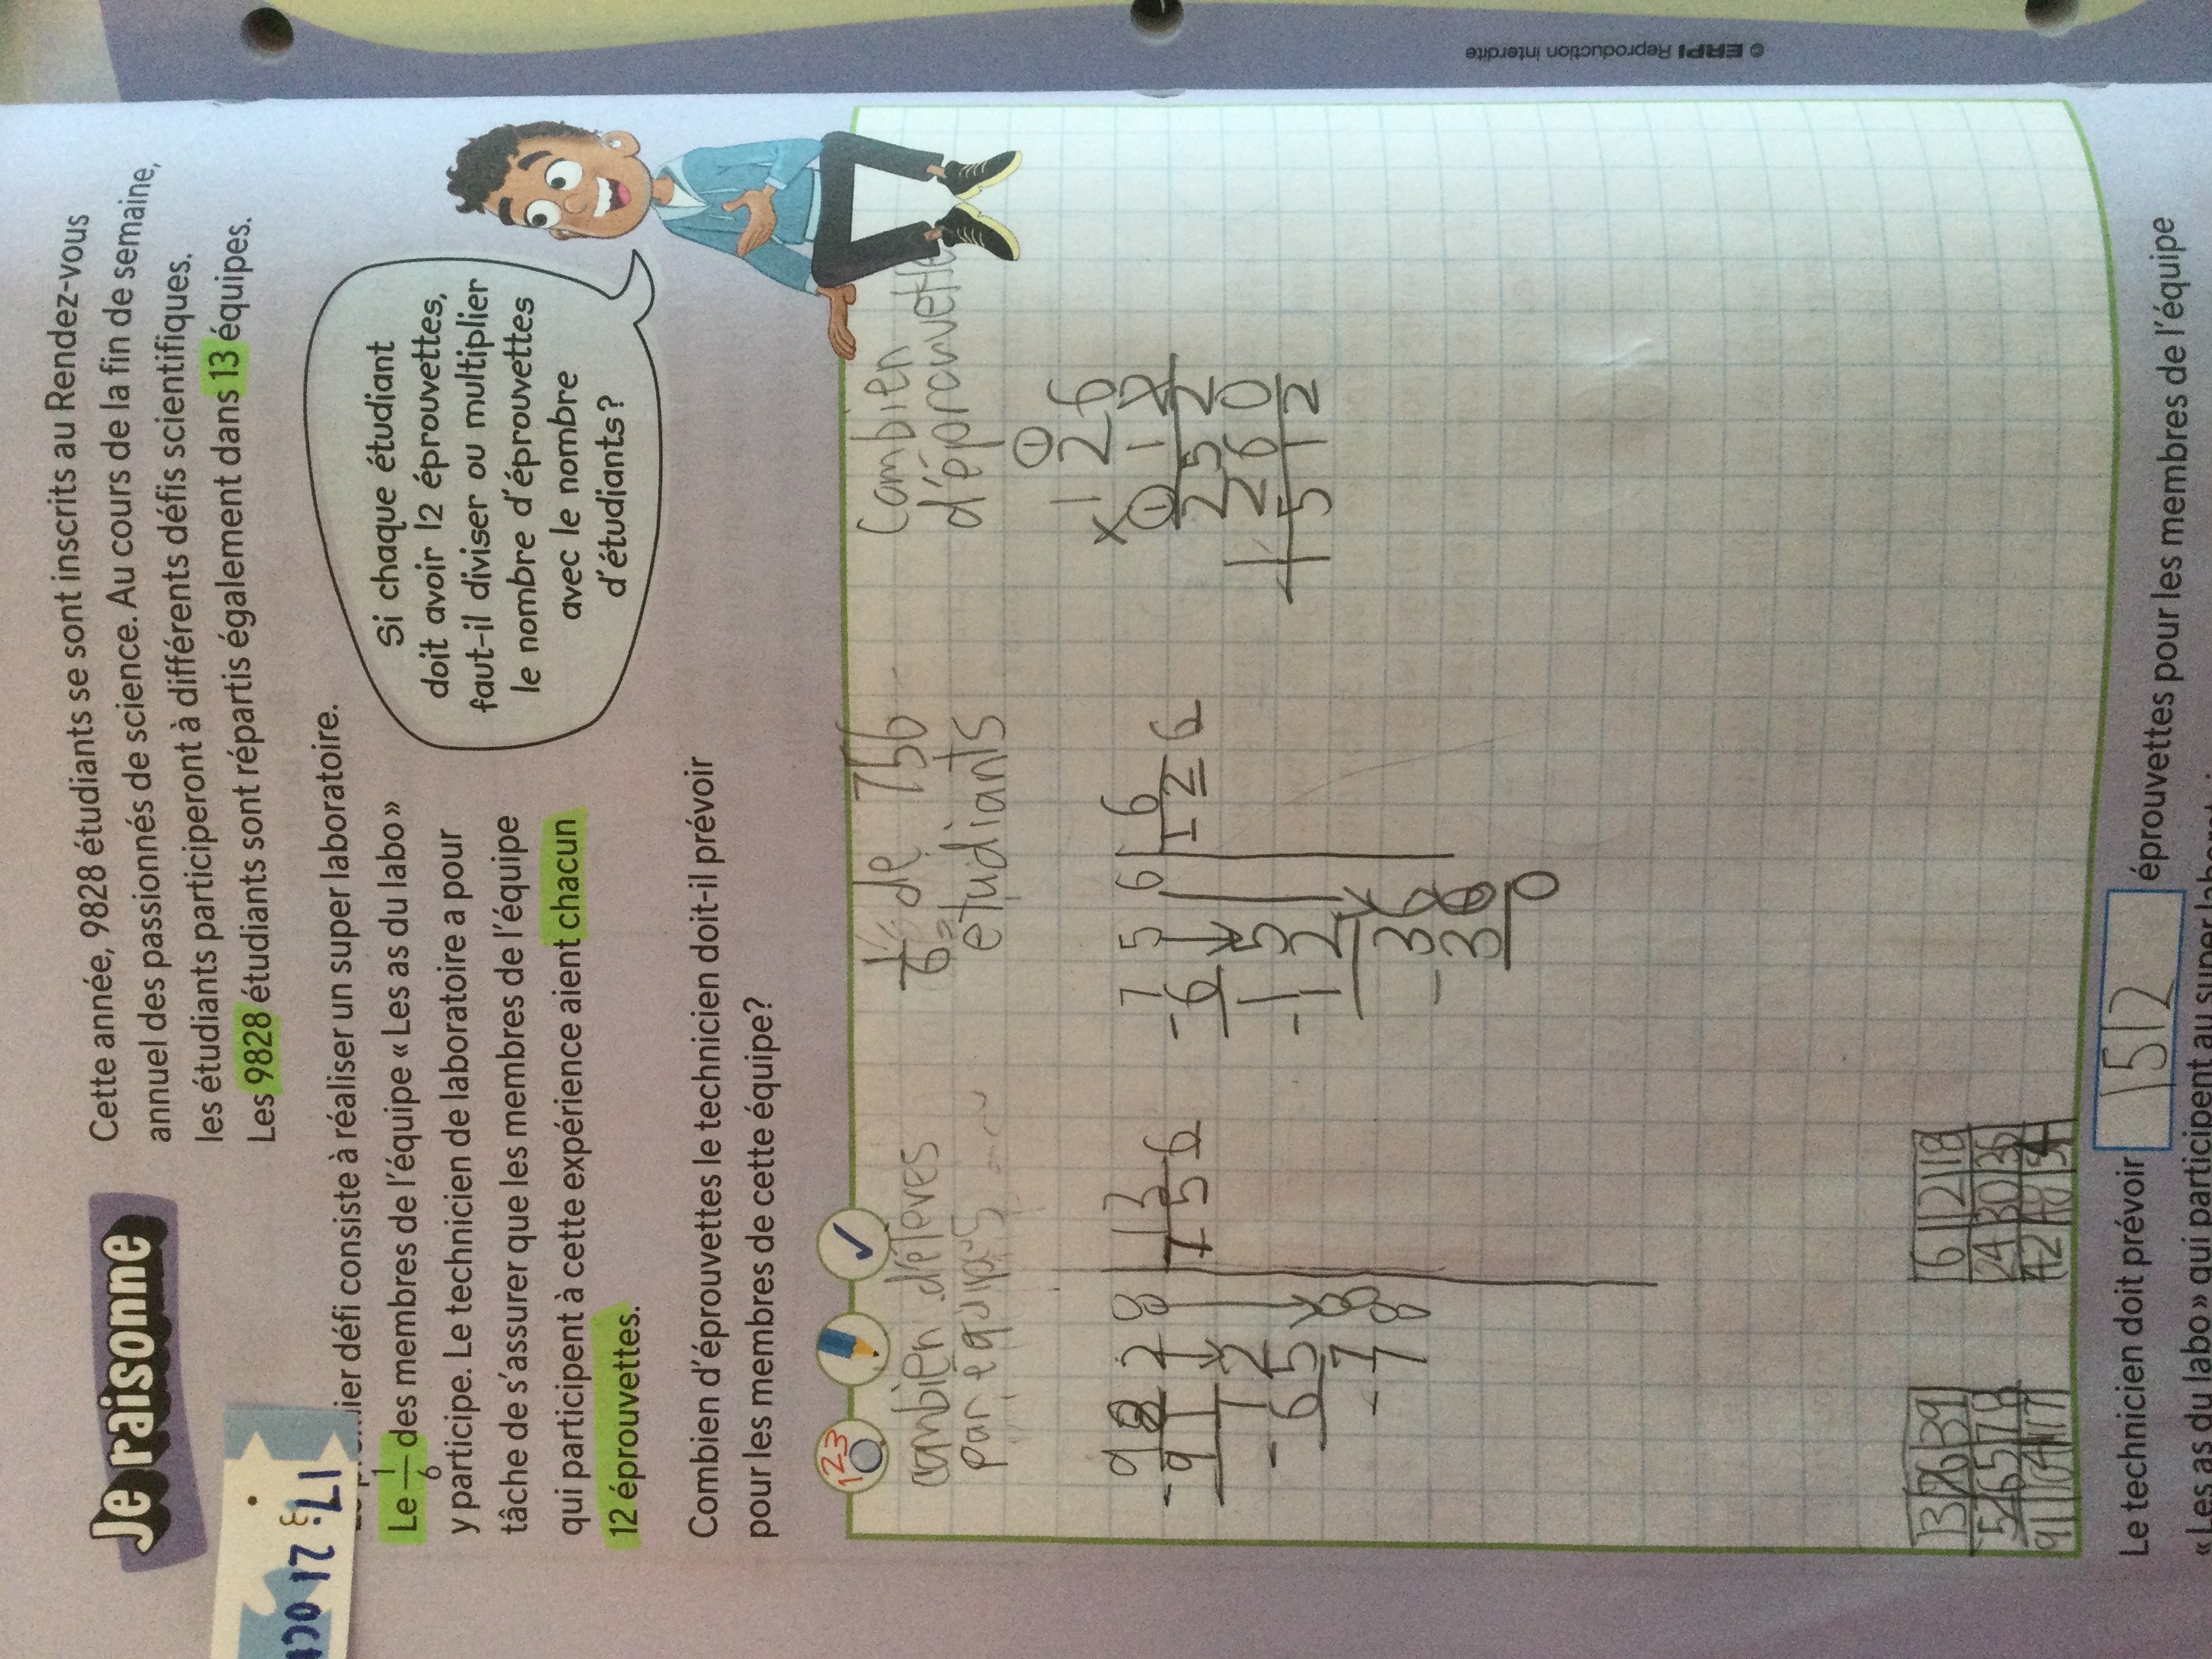 Je raisonne
Cette année, 9828 étudiants se sont inscrits au Rendez-vous
annuel des passionnés de science. Au cours de la fin de semaine,
les étudiants participeront à différents défis scientifiques.
Les 9828 étudiants sont répartis également dans 13 équipes.
défi consiste à réaliser un super laboratoire.
Le 1/6 des membres de l'équipe « Les as du labo »
y participe. Le technicien de laboratoire a pour
tâche de s'assurer que les membres de l'équipe
qui participent à cette expérience aient chacun
12 éprouvettes.
Si chaque étudiant
doit avoir 12 éprouvettes,
faut-il diviser ou multiplier
le nombre d'éprouvettes
avec le nombre
d'étudiants?
Combien d'éprouvettes le technicien doit-il prévoir
pour les membres de cette équipe?
123
combien d'éleves
par equipes
9828 13
-9 756
12
-65
78
-78
1/6 de 756
etudiants
756 6
-6 126
15
-12
36
-36
0
combien
d'éprouvette
1
126
x 12
1
252
1260
1512
13 26 39
52 65 78
91 104 117
6 12 18
24 30 36
42 48 54
Le technicien doit prévoir 1512 éprouvettes pour les membres de l'équipe
« Les as du labo » qui participent au super
© ERPI Reproduction interdite